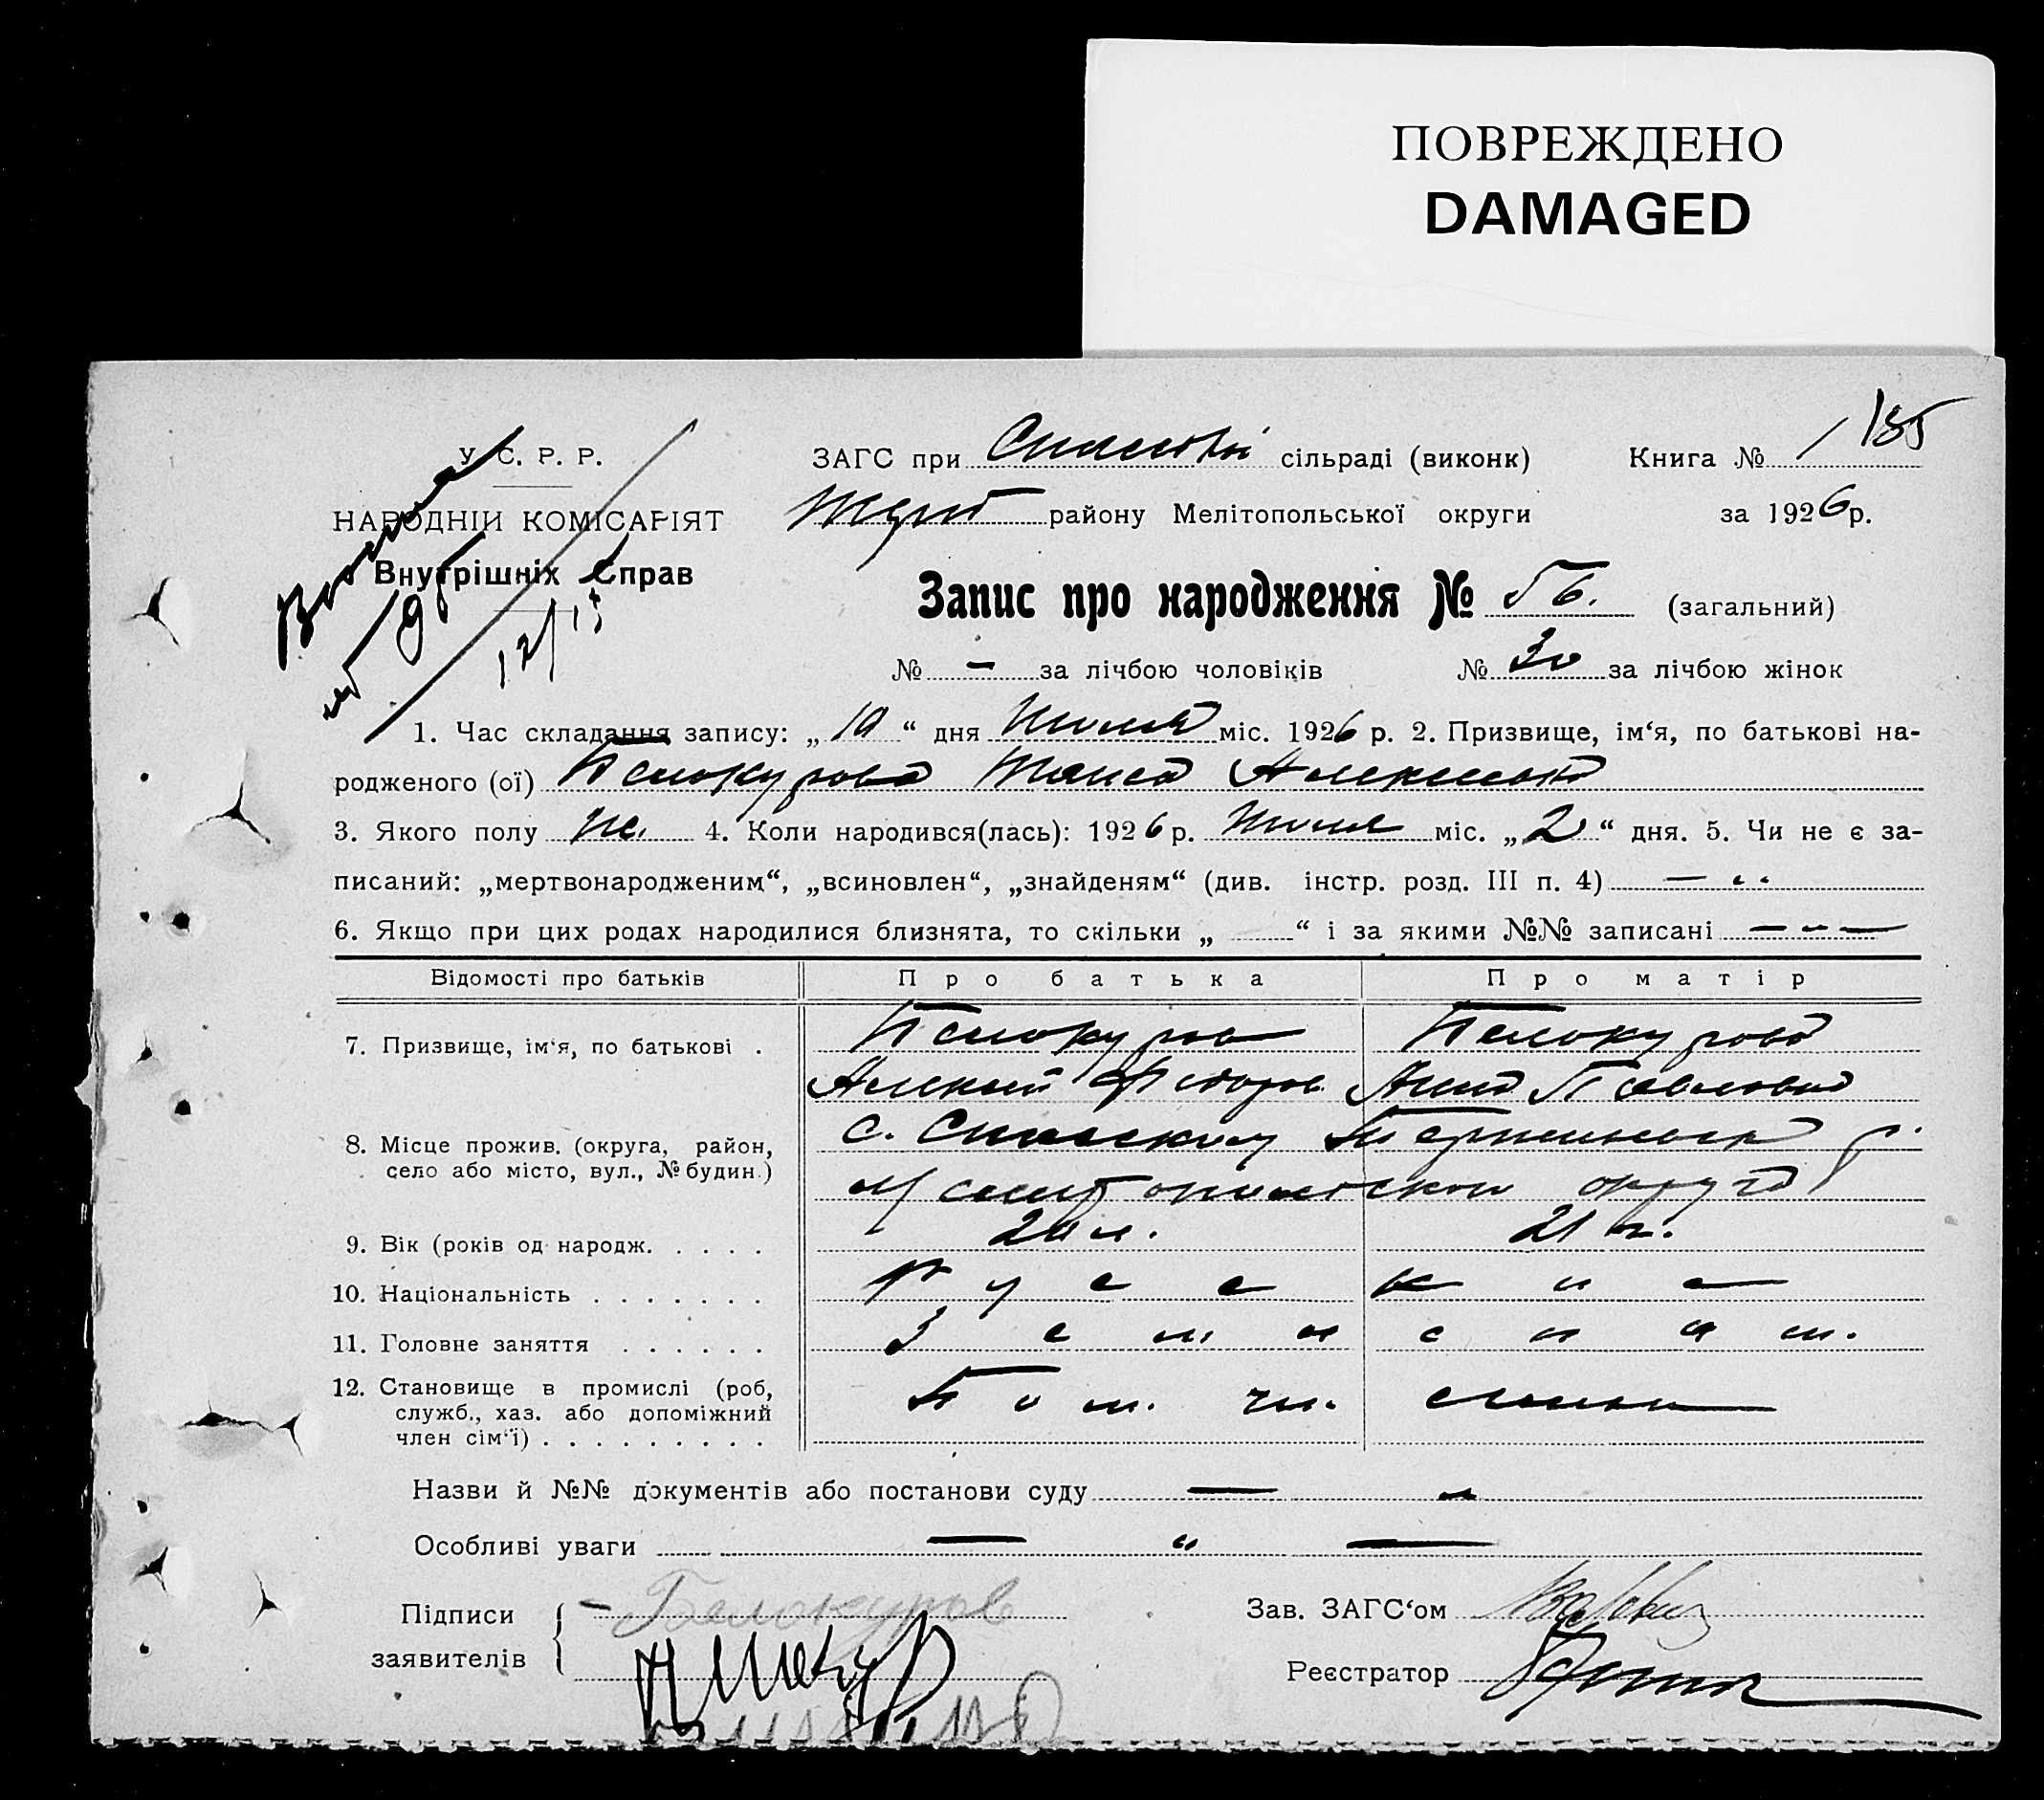 ПОВРЕЖДЕНО
DAMAGED
185
У. С. Р. Р.
ЗАГС при сільраді (виконк) Книга № 1
НАРОДНІЙ КОМІСАРІЯТ
району Мелітопольської округи за 1926 р.
Внутрішніх Справ
Запис про народження № 56. (загальний)
№ - за лічбою чоловіків № 30 за лічбою жінок
1. Час складання запису: „10“ дня Июля міс. 1926 р. 2. Призвище, ім‘я, по батькові на-
родженого (ої) Белокурова Таиса Алексеевна
3. Якого полу же. 4. Коли народився(лась): 1926 р. Июля міс. „2“ дня. 5. Чи не є за-
писаний: „мертвонародженим“, „всиновлен“, „знайденям“ (див. інстр. розд. III п. 4)
6. Якщо при цих родах народилися близнята, то скільки „ “ і за якими №№ записані
Відомості про батьків Про батька Про матір
7. Призвище, ім‘я, по батькові . Белокуров Белокурова
Алексей Федоров Анна Павловна
8. Місце прожив. (округа, район, с. Спасское р.
село або місто, вул., № будин.) Мелитопольской округа
9. Вік (років од народж. . . . . 20 л. 21 г.
10. Національність . . . . . . . Русские
11. Головне заняття . . . . . .
12. Становище в промислі (роб,
служб., хаз. або допоміжний
член сім‘ї) . . . . . . . . . Пом. чл. семьи
Назви й №№ документів або постанови суду
Особливі уваги
Підписи Белокуров Зав. ЗАГС‘ом
заявителів Реєстратор